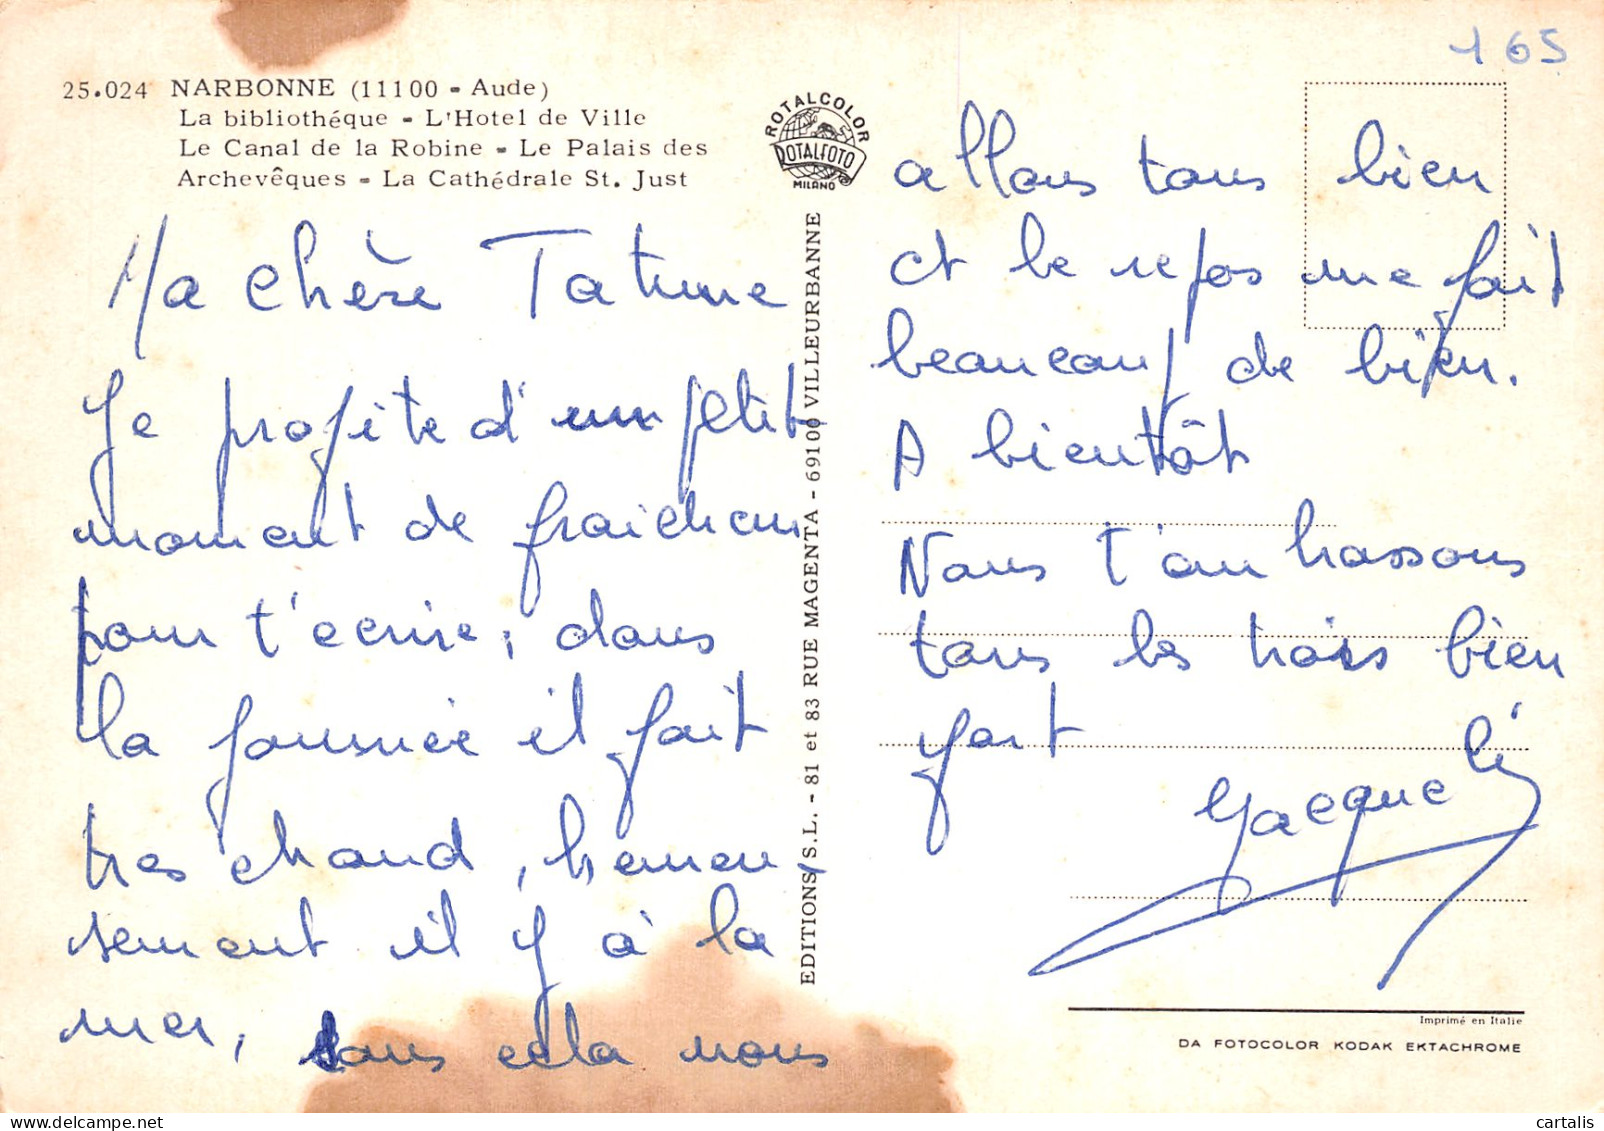 165
25.024 NARBONNE (11100 - Aude)
La bibliothéque - L'Hotel de Ville
Le Canal de la Robine - Le Palais des
Archevêques - La Cathédrale St. Just
ROTALCOLOR
ROTALFOTO
MILANO
EDITIONS S.L. - 81 et 83 RUE MAGENTA - 69100 VILLEURBANNE
Ma chère
Je profite d'un petit
moment de fraicheur
pour t'ecrire, dans
la journée il fait
tres chaud, heureu
sement il y à la
mer, sans cela nous
allons tous bien
et le repos me fait
beaucoup de bien.
A bientôt
Nous t'embrassons
tous les trois bien
fort
Imprimé en Italie
DA FOTOCOLOR KODAK EKTACHROME
cartalis